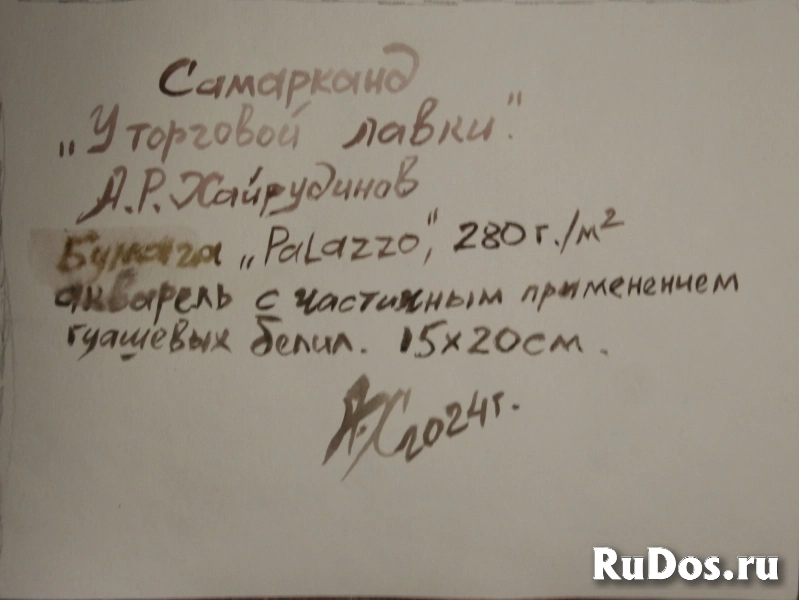 Самарканд
„У торговой лавки".
А.Р.Хайрудинов
Бумага „PaLazzo", 280 г./м²
акварель с частичным применением
гуашевых белил. 15х20см.
А.Х 2024г.
RuDos.ru